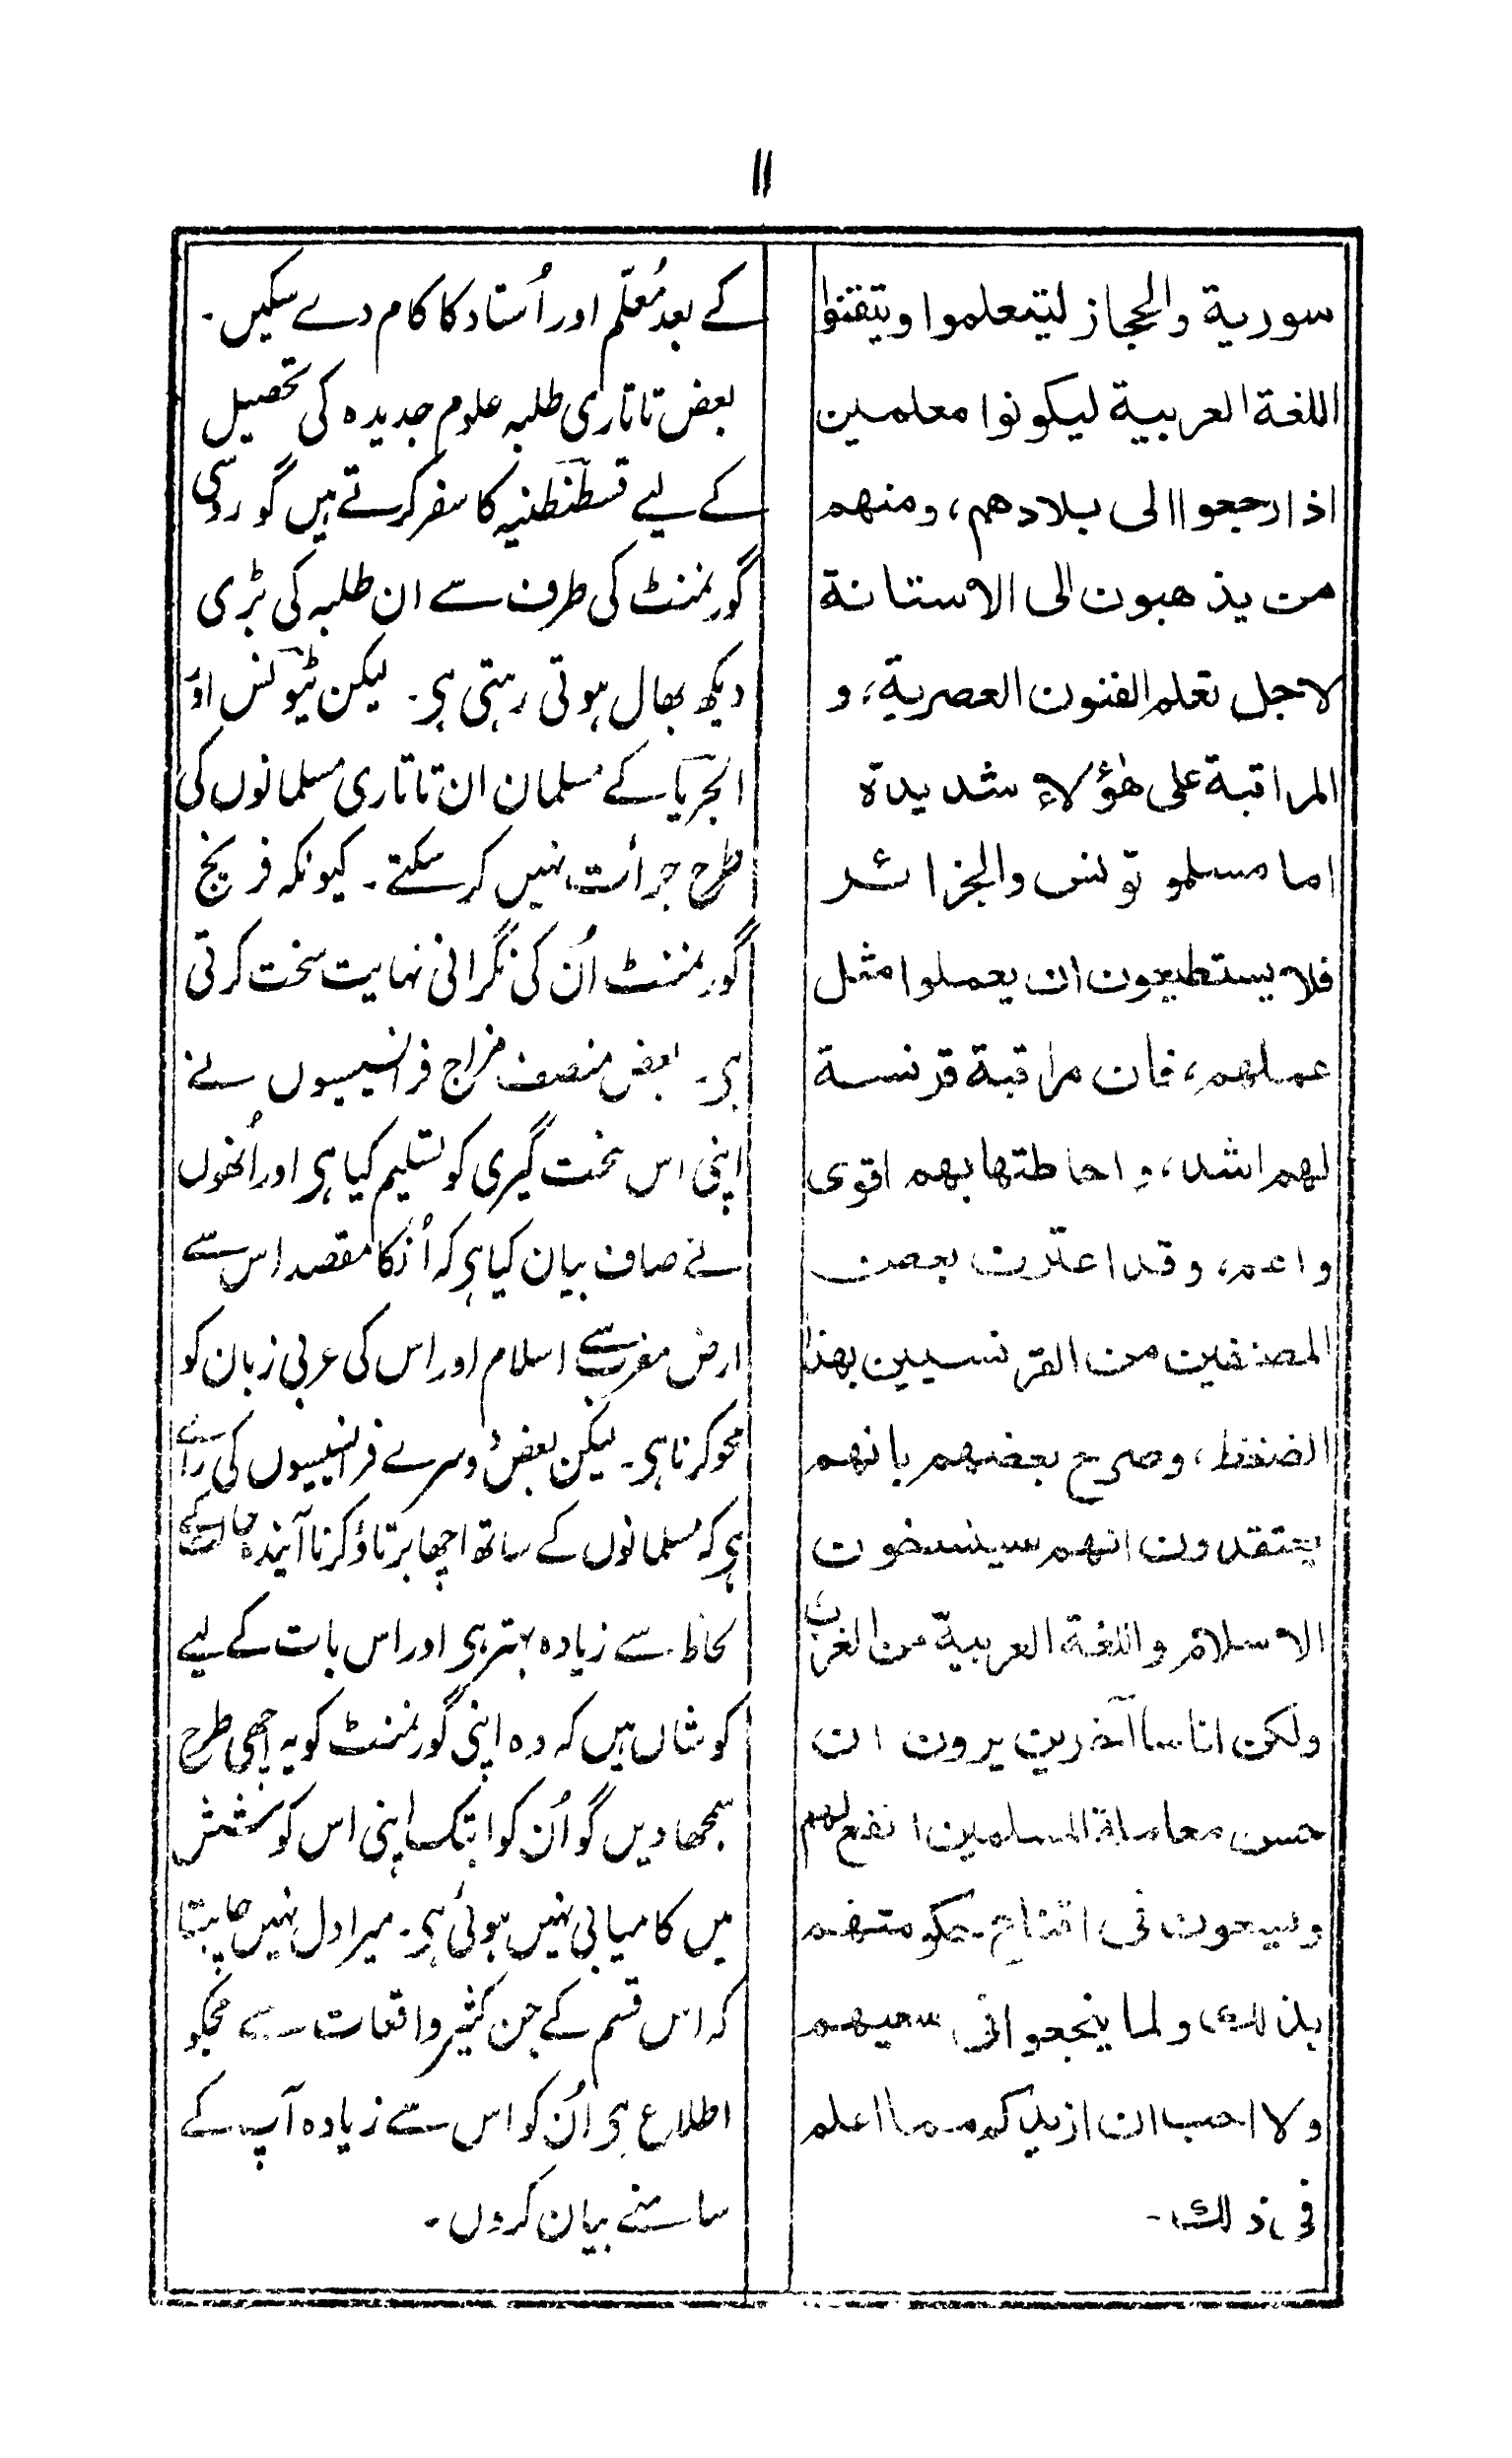 ۱۱
سورية والحجاز ليتعلموا ويتقنوا
اللغة العربية ليكونوا معلمين
اذا رجعوا الى بلادهم، ومنهم
من يذهبون الى الاستانة
لاجل تعلم الفنون العصرية، و
المراقبة على هٰؤلاء شديدة
اما مسلمو تونس والجزائر
فلا يستطيعون ان يعملوا مثل
عملهم، فان مراقبة فرنسة
لهم اشد، واحاطتها بهم اقوى
واعم، وقد اعترف بعض
المصنفين من الفرنسيين بهذا
الضغط، وصرح بعضهم بانهم
يعتقدون انهم سينسخون
الاسلام واللغة العربية من الغرب
ولكن اناسا آخرين يرون ان
حسن معاملة المسلمين انفع لهم
ويسعون فى اقناع حكومتهم
بذلك، ولما ينجحوا فى سعيهم
ولا احب ان ازيدكم مما اعلم
فى ذلك۔
کے بعد مُعلّم اور اُستاد کا کام دے سکیں۔
بعض تاتاری طلبہ علوم جدیدہ کی تحصیل
کے لیے قسطنطنیہ کا سفر کرتے ہیں گو روسی
گورنمنٹ کی طرف سے ان طلبہ کی بڑی
دیکھ بھال ہوتی رہتی ہی۔ لیکن ٹیونس اور
الجریا کے مسلمان ان تاتاری مسلمانوں کی
طرح جرأت نہیں کر سکتے۔ کیونکہ فرنچ
گورنمنٹ اُن کی نگرانی نہایت سخت کرتی
ہی۔ بعض منصف مزاج فرانسیسیوں نے
اپنی اس سخت گیری کو تسلیم کیا ہی اور اُنھوں
نے صاف بیان کیا ہی کہ اُنکا مقصد اس سے
ارض مغرب سے اسلام اور اس کی عربی زبان کو
محو کرنا ہی۔ لیکن بعض دوسرے فرانسیسیوں کی رائے
ہی کہ مسلمانوں کے ساتھ اچھا برتاؤ کرنا آیندہ حالت کے
لحاظ سے زیادہ بہتر ہی اور اس بات کے لیے
کوشاں ہیں کہ وہ اپنی گورنمنٹ کو یہ اچھی طرح
سمجھا دیں گو اُن کو ابتک اپنی اس کوشش
میں کامیابی نہیں ہوئی ہی۔ میرا دل نہیں چاہتا
کہ اس قسم کے جن کثیر واقعات سے مجکو
اطلاع ہی اُن کو اس سے زیادہ آپ کے
سامنے بیان کروں۔